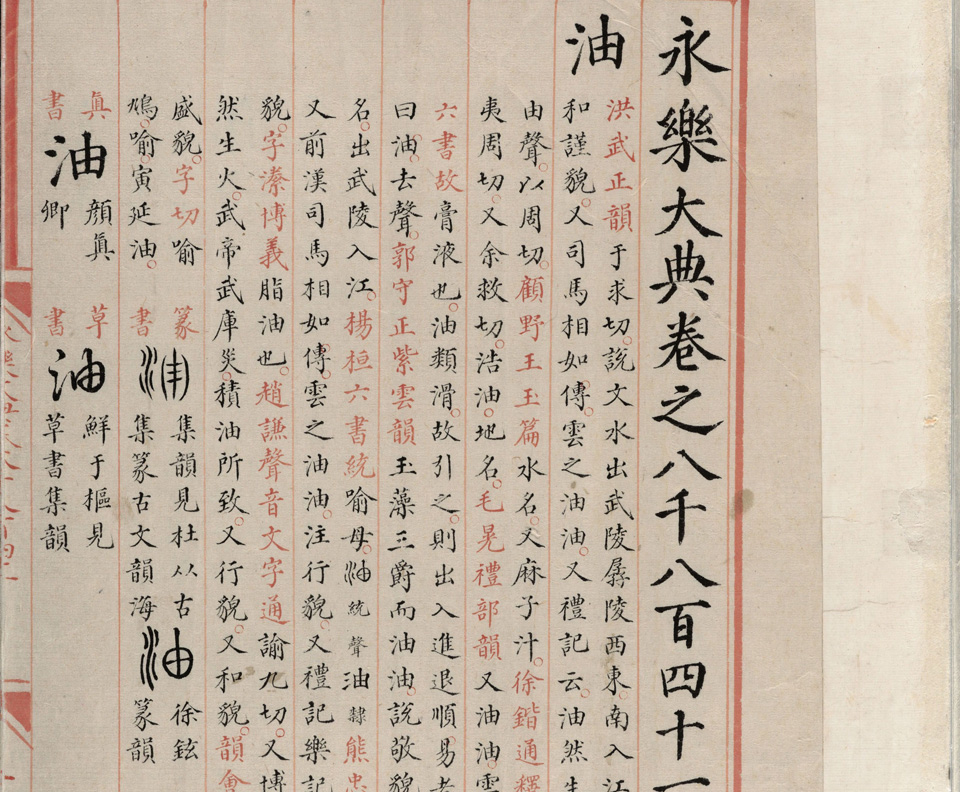 永樂大典卷之八千八百四十一
油
洪武正韻于求切說文水出武陵孱陵西東南入江
和謹貌又司馬相如傳雲之油油又禮記云油然生
由聲以周切顧野王玉篇水名又麻子汁徐鍇通釋
夷周切又余救切浩油地名毛晃禮部韻又油油雲
六書故膏液也油類滑故引之則出入進退順易者
曰油去聲郭守正紫雲韻玉藻三爵而油油說敬貌
名出武陵入江楊桓六書統喻母油統聲油隸熊忠
又前漢司馬相如傳雲之油油注行貌又禮記樂記
貌字潫博義脂油也趙謙聲音文字通諭九切又博
然生火武帝武庫災積油所致又行貌又和貌韻會
盛貌字切喻
鳩喻寅延油
篆書
油
集韻見杜從古
集篆古文韻海
油
徐鉉
篆韻
真書
油
顏真
卿
草書
油
鮮于樞見
草書集韻